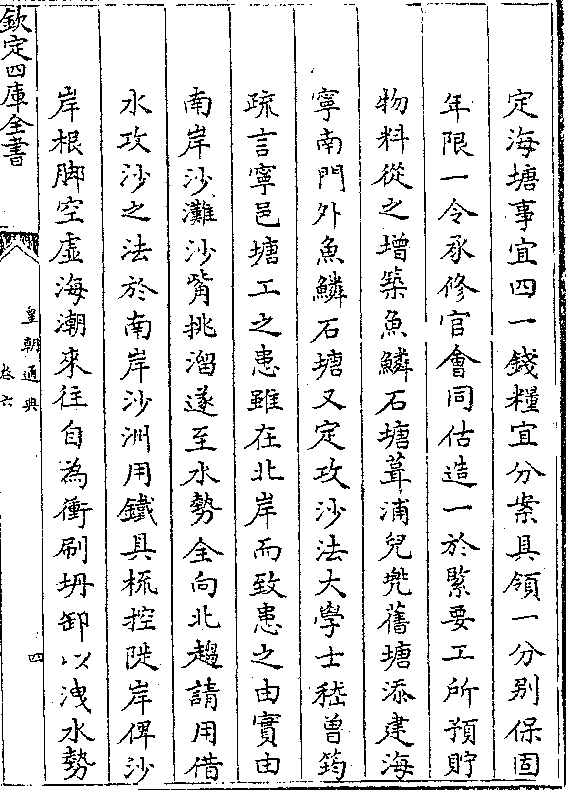 定海塘事宜四一錢糧宜分案具領一分别保固
年限一令承修官會同估造一於緊要工所預貯
物料從之增築魚鱗石塘葺浦兒兠舊塘添建海
寧南門外魚鱗石塘又定攻沙法大學士嵇曾筠
疏言寧邑塘工之患雖在北岸而致患之由實由
南岸沙灘沙觜挑溜遂至水勢全向北趨請用借
水攻沙之法於南岸沙洲用鐵具梳挖陡岸俾沙
岸根脚空虚海潮來往自為衝刷坍卸以洩水勢
欽定四庫全書
皇朝通典
卷六
四